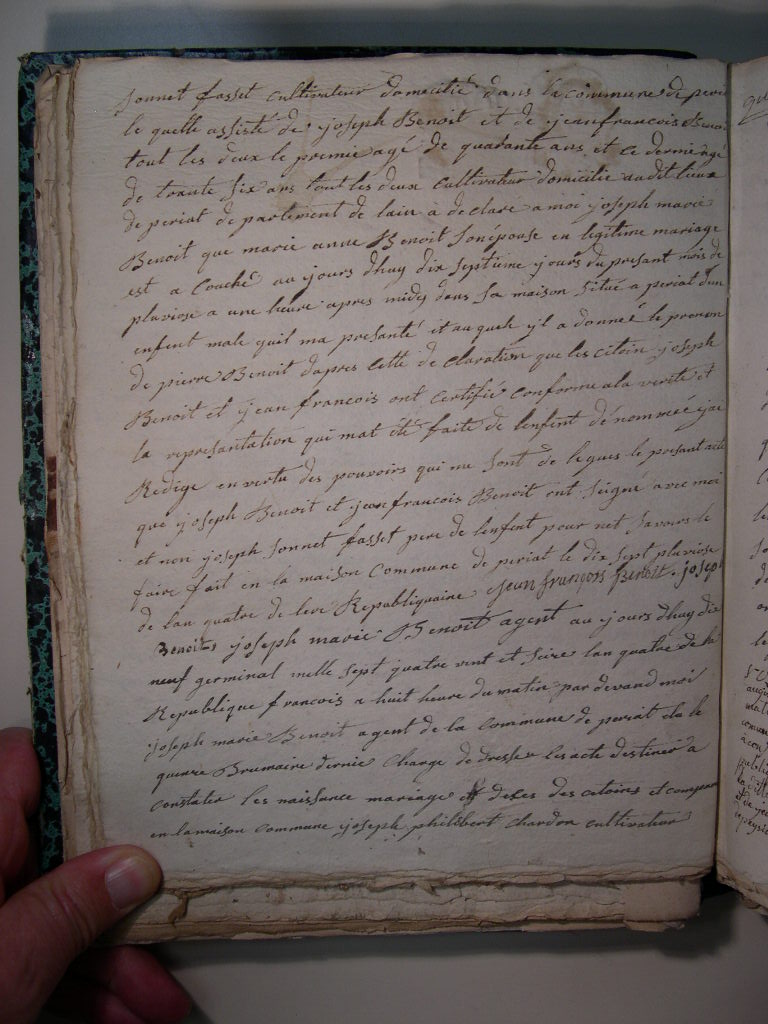 sonnet fasset cultivateur domicilié dans la commune de peri
le quelle assisté de joseph Benoit et de jeanfrancois Beno
tout les deux le premie agé de quarante ans et ce dernie agé
de trante six ans tout les deux cultivateur domicilie audit lieux
de periat de partement de lain à declaré a moi joseph marie
Benoit que marie anne Benoit sonépouse en legitime mariage
est a couché au jours dhuy dix septieme jours du presant mois de
pluviose a une heure apres midy dans sa maison situé a periat dun
enfent male quil ma presanté et auquel yl a donneé le prenom
de pierre Benoit dapres cette declaration que les citoin joseph
Benoit et jean francois ont certifié conforme a la verité et
la represantation qui mat été faite de lenfent dénommeé jai
Redige en vertu des pouvoirs qui me sont delegues le presant acte
que joseph Benoit et jean francois Benoit ont seigné avec moi
et non joseph sonnet fasset pere de lenfent pour net savoir le
faire fait en la maison commune de periat le dix sept pluviose
de lan quatre de lere Republiquaine jean françois Benoit. josep
Benoit joseph marie Benoit agent au jours dhuy dix
neuf germinal mille sept quatre vint et seize lan quatre de la
Republique francois a huit heure du matin par devand moi
joseph marie Benoit agent de la commune de periat elu le
quinze Brumaire dernie charge de dresser les acte destiner à
constater les naissance mariage et deces des citoins et comparu
en la maison commune joseph philibert chardon cultivateur